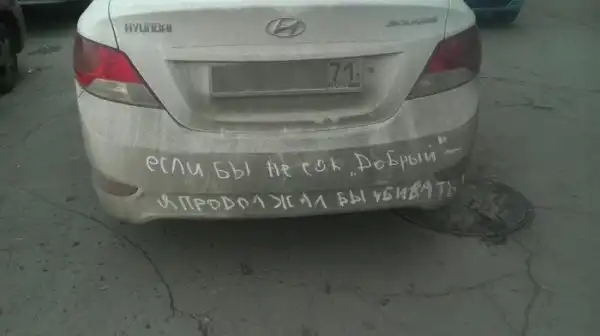 HYUNDAI SOLARIS
71
если бы не сок „Добрый"–
я продолжал бы убивать!